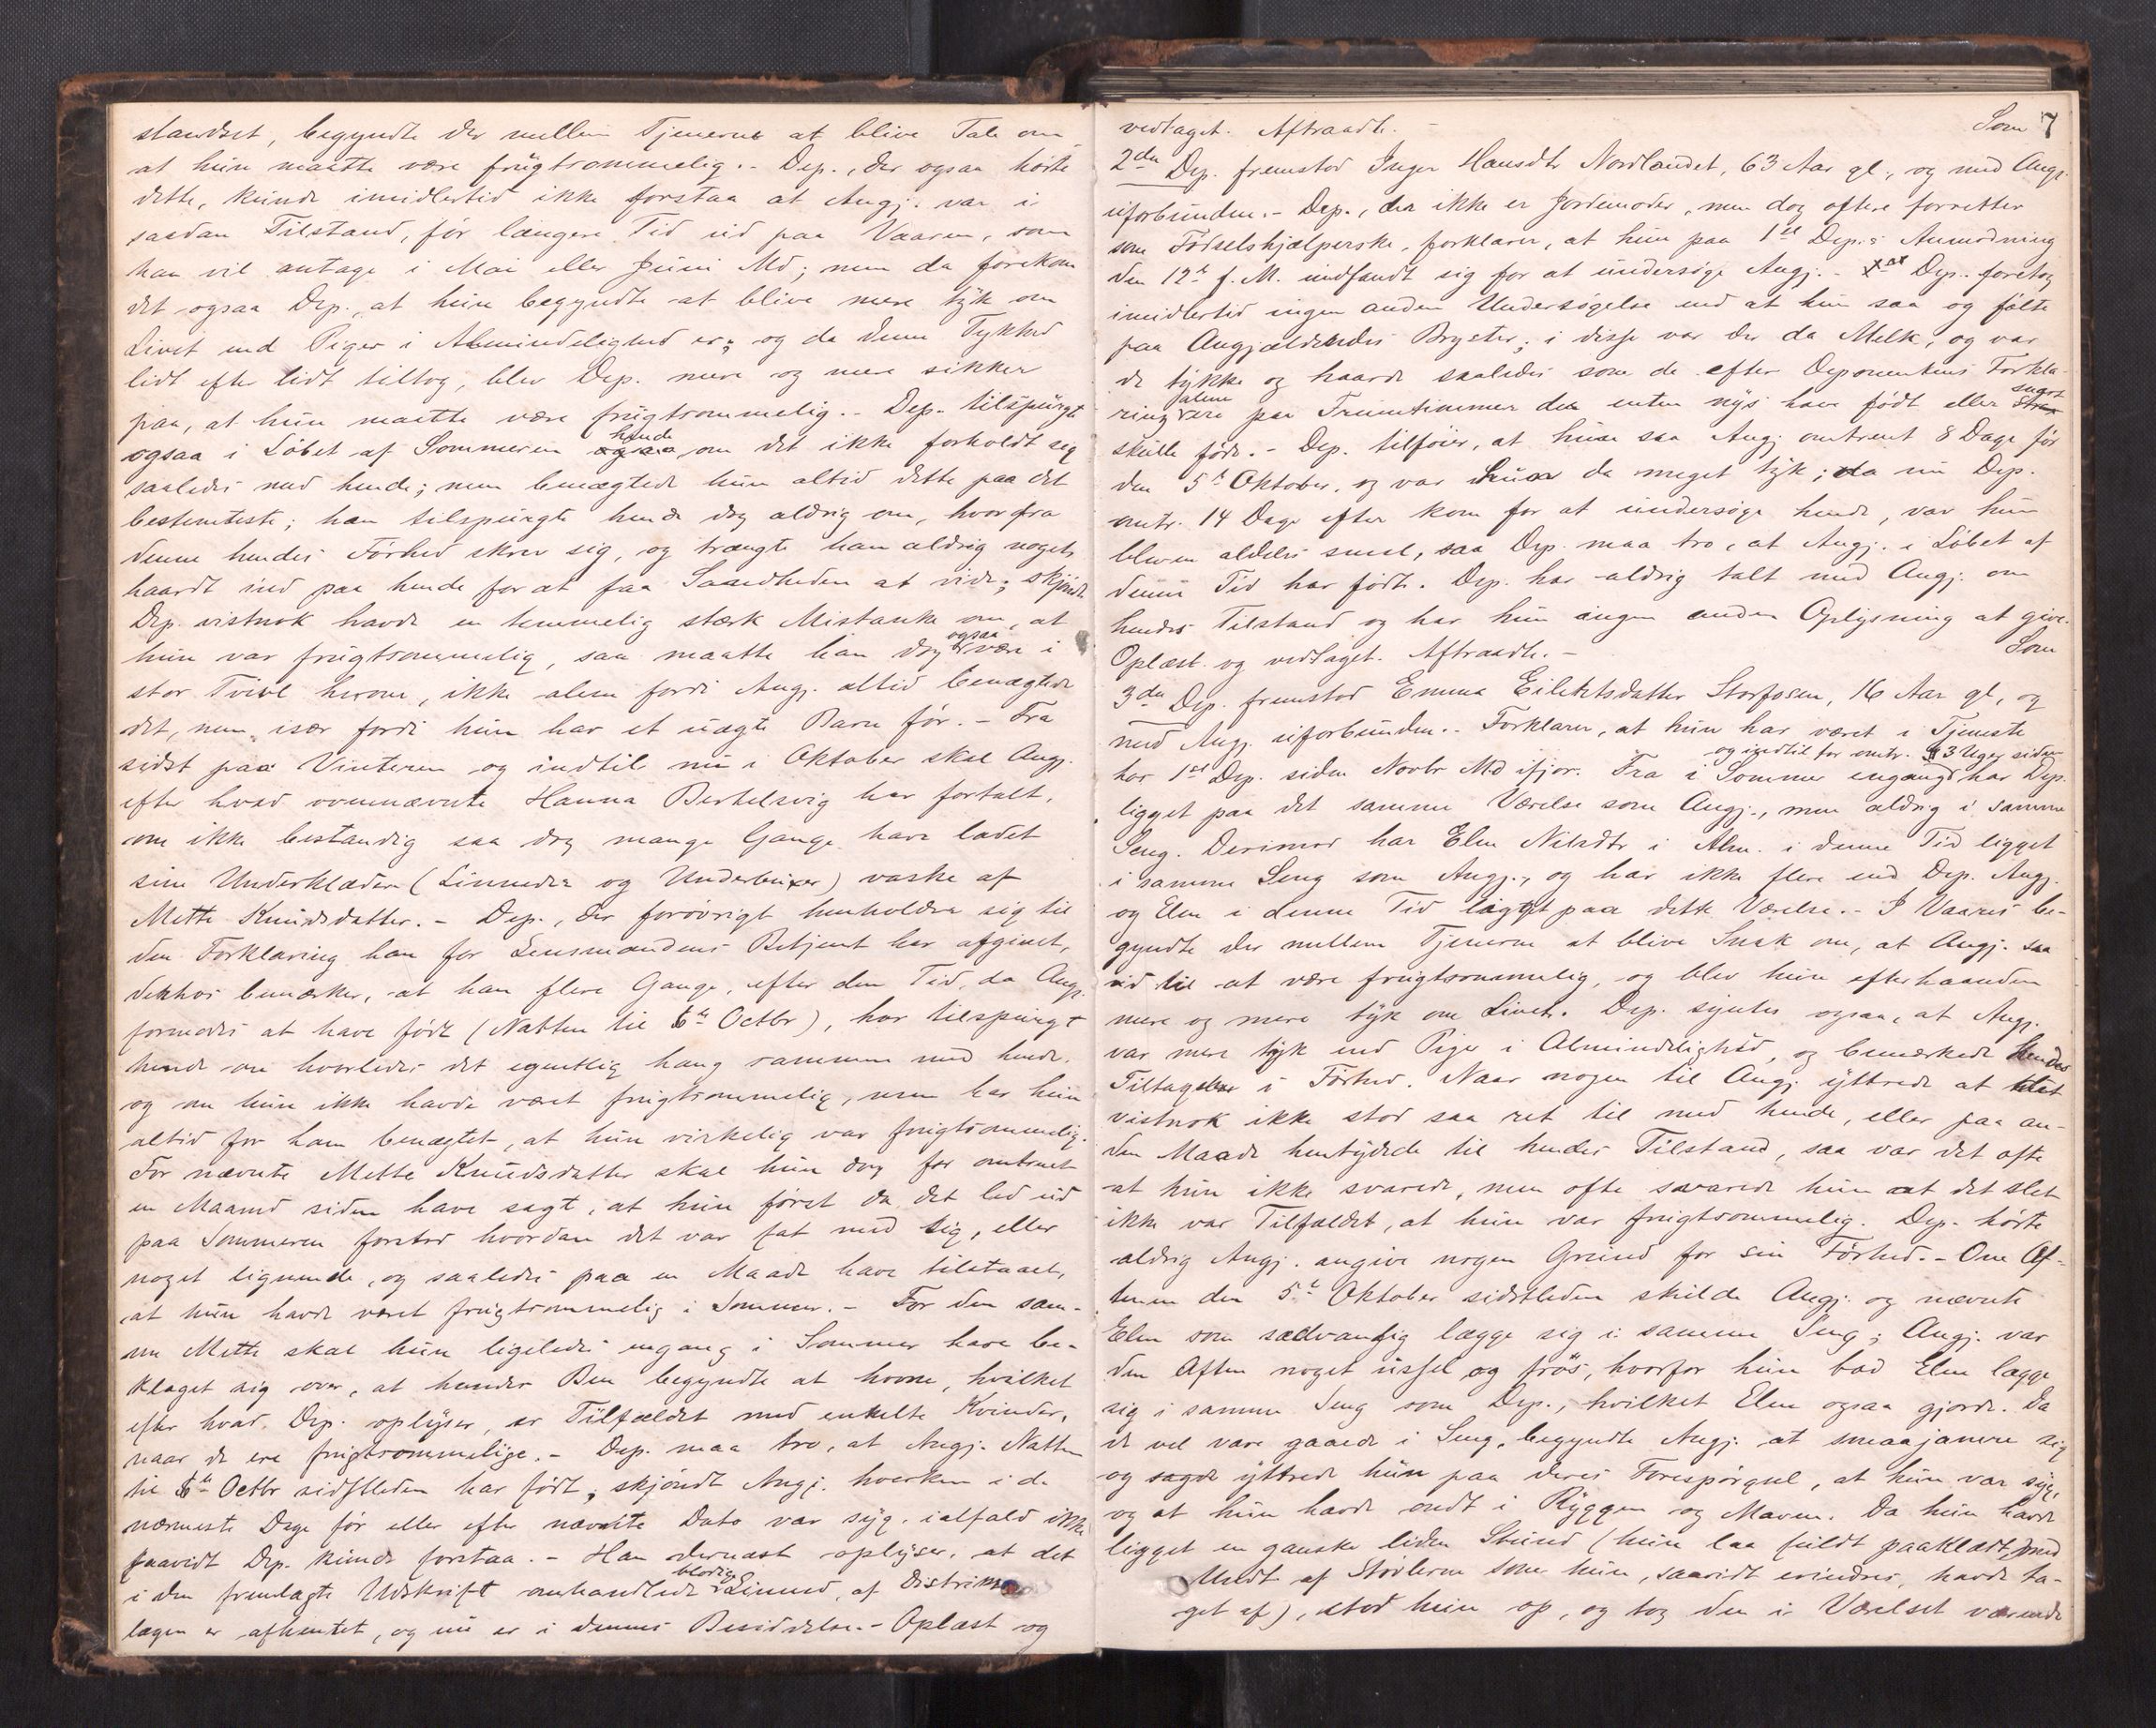 standset, begyndte der mellem Tjenerne at blive Tale om
at hun maatte være frugtsommelig. - Dep., der ogsaa hörte
dette, kunde imidlertid ikke forstaa at Angj. var i
saadan Tilstand, för længere Tid ud paa Vaaren, som
han vil antage i Mai eller Juni Md; men da forekom
det ogsaa Dep., at hun begyndte at blive mere tyk om
Livet end Piger i Almindelighed er; og da denne Tykhed
lidt efter lidt tiltog, blev Dep. mere og mere sikker
paa, at hun maatte være frugtsommelig. - Dep. tilspurgt
ogsaa i Löbet af Sommeren hende, om det ikke forholdt seg
saaledes med hende; men benægtede hun altid dette paa det
bestemteste; han tilspurgte hende dog aldrig om, hvorfra
denne hendes Förhed skrev sig, og trængte han aldrig noget
haardt ind paa hende for at faa Sandheden at vide; skjöndt
Dep. vistnok havde en temmelig stærk Mistanke om, at
hun var frugtsommelig, saa maatte han dog ogsaa være i
stor Tvivl herom, ikke alene fordi Angj. altid benægtede
det, men især fordi hun har et uægte Barn för. - Fra
sidst paa Vinteren og indtil nu i Oktober skal Angj.
efter hvad ovennævnte Hanna Berkelsvig har fortalt,
om ikke bestandig saa dog mange Gange have ladet
sine Underklæder (Linneder og Underbuxer) vaske af
Mette Knudsdatter. - Dep., der forövrigt henholder sig til
den Forklaring han for Lensmandens Betjent har afgivet,
derhos bemærker, at han flere Gange, efter den Tid, da Angj.
formodes at have född (Natten til 6te Octbr), har tilspurgt
hende om hvorledes det egentlig hang sammen med hende,
og om hun ikke havde været frugtsommelig, men har hun
altid for ham benægtet, at hun virkelig var frugtsommelig.
For nævnte Mette Knudsdatter skal hun dog for omtrent
en Maaned siden have sagt, at hun först da det led ud
paa Sommeren forstod hvordan det var fat med sig, eller
noget lignende, og saaledes paa en Maade have tilstaaet,
at hun havde været frugtsommelig i Sommer. - For den sam-
me Mette skal hun ligeledes engang i Sommer have be-
klaget sig over, at hendes Ben begyndte at hovne, hvilket
efter hvad Dep. oplyser, er Tilfældet med enkelte Kvinder,
naar de ere frugtsommelige. - Dep. maa tro, at Angj. Natten
til 6te Octbr sidstleden har född, skjöndt Angj. hverken i de
nærmeste Dage för eller efter nævnte Dato var syg, ialfald ikke
saavidt Dep. kunde forstaa. - Han dernæst oplyser, at det
i den fremlagte Udskrift omhandlede blodige Linned, af Distrikts
lægen er afhentet, og nu er i dennes Besiddelse. - Oplæst og
7
vedtaget. Aftraadt. - Som
2den Dep. fremstod Inger Hansdtr Nordlandet, 63 Aar gl., og med Angj.
uforbunden. - Dep., der ikke er Jordemoder, men dog oftere forretter
som Födselshjælperske, forklarer, at hun paa 1ste Dep.s Anmodning
den 12te f. M. indfandt sig for at undersöge Angj. - Dep. foretog
imidlertid ingen anden Undersögelse end at hun saa og fölte
paa Angjældendes Bryster; i disse var der da Melk, og var
de tykke og haarde saaledes som de efter Deponentens Forkla-
ring alene ere paa Fruentimmer der enten nys have född eller snart
skulle föde. - Dep. tilföier, at hun saa Angj. omtrent 8 Dage för
den 5te Oktober, og var hun da meget tyk; da nu Dep.
omtr. 14 Dage efter kom for at undersöge hende, var hun
bleven aldeles smal, saa Dep. maa tro, at Angj. i Löbet af
denne Tid har född. Dep. har aldrig talt med Angj. om
hendes Tilstand og har hun ingen anden Oplysning at give.
Oplæst og vedtaget. Aftraadt. - Som
3die Dep. fremstod Emma Eilertsdatter Storfosen, 16 Aar gl, og
med Angj. uforbunden. - Forklarer, at hun har været i Tjeneste
hos 1ste Dep. siden Novbr Md ifjor. Fra i Sommer engang og indtil for omtr. 3 Uger siden har Dep.
ligget paa det samme Værelse som Angj., men aldrig i samme
Seng. Derimod har Elen Nilsdtr i Alm. i denne Tid ligget
i samme Seng som Angj., og har ikke flere end Dep. Angj.
og Elen i denne Tid ligget paa dette Værelse. - I Vaares be-
gyndte der mellem Tjenerne at blive Snak om, at Angj. saa
ud til at være frugtsommelig, og blev hun efterhaanden
mere og mere tyk om Livet. Dep. syntes ogsaa, at Angj.
var mere tyk end Piger i Almindelighed, og bemærkede hendes
Tiltagelse i Förhed. Naar nogen til Angj. yttrede at det
vistnok ikke stod saa ret til med hende, eller paa an-
den Maade hentydede til hendes Tilstand, saa var det ofte
at hun ikke svarede, men ofte svarede hun at det slet
ikke var Tilfældet, at hun var frugtsommelig. Dep. hörte
aldrig Angj. angive nogen Grund for sin Förhed. - Om Af-
tenen den 5te Oktober sidstleden skulde Angj. og nævnte
Elen som sædvanlig lægge sig i samme Seng; Angj. var
den Aften noget ussel og frös, hvorfor hun bad Elen lægge
sig i samme Seng som Dep., hvilket Elen ogsaa gjorde. Da
de vel vare gaaede i Seng, begyndte Angj. at smaajamre sig
og yttrede hun paa deres Forespörgsel, at hun var syg,
og at hun havde ondt i Ryggen og Maven. Da hun havde
ligget en ganske liden Stund (hun laa fuldt paaklædt, med
Undt. af Stövlerne som hun, saavidt erindres, havde ta-
get af), stod hun op, og tog den i Værelset værende